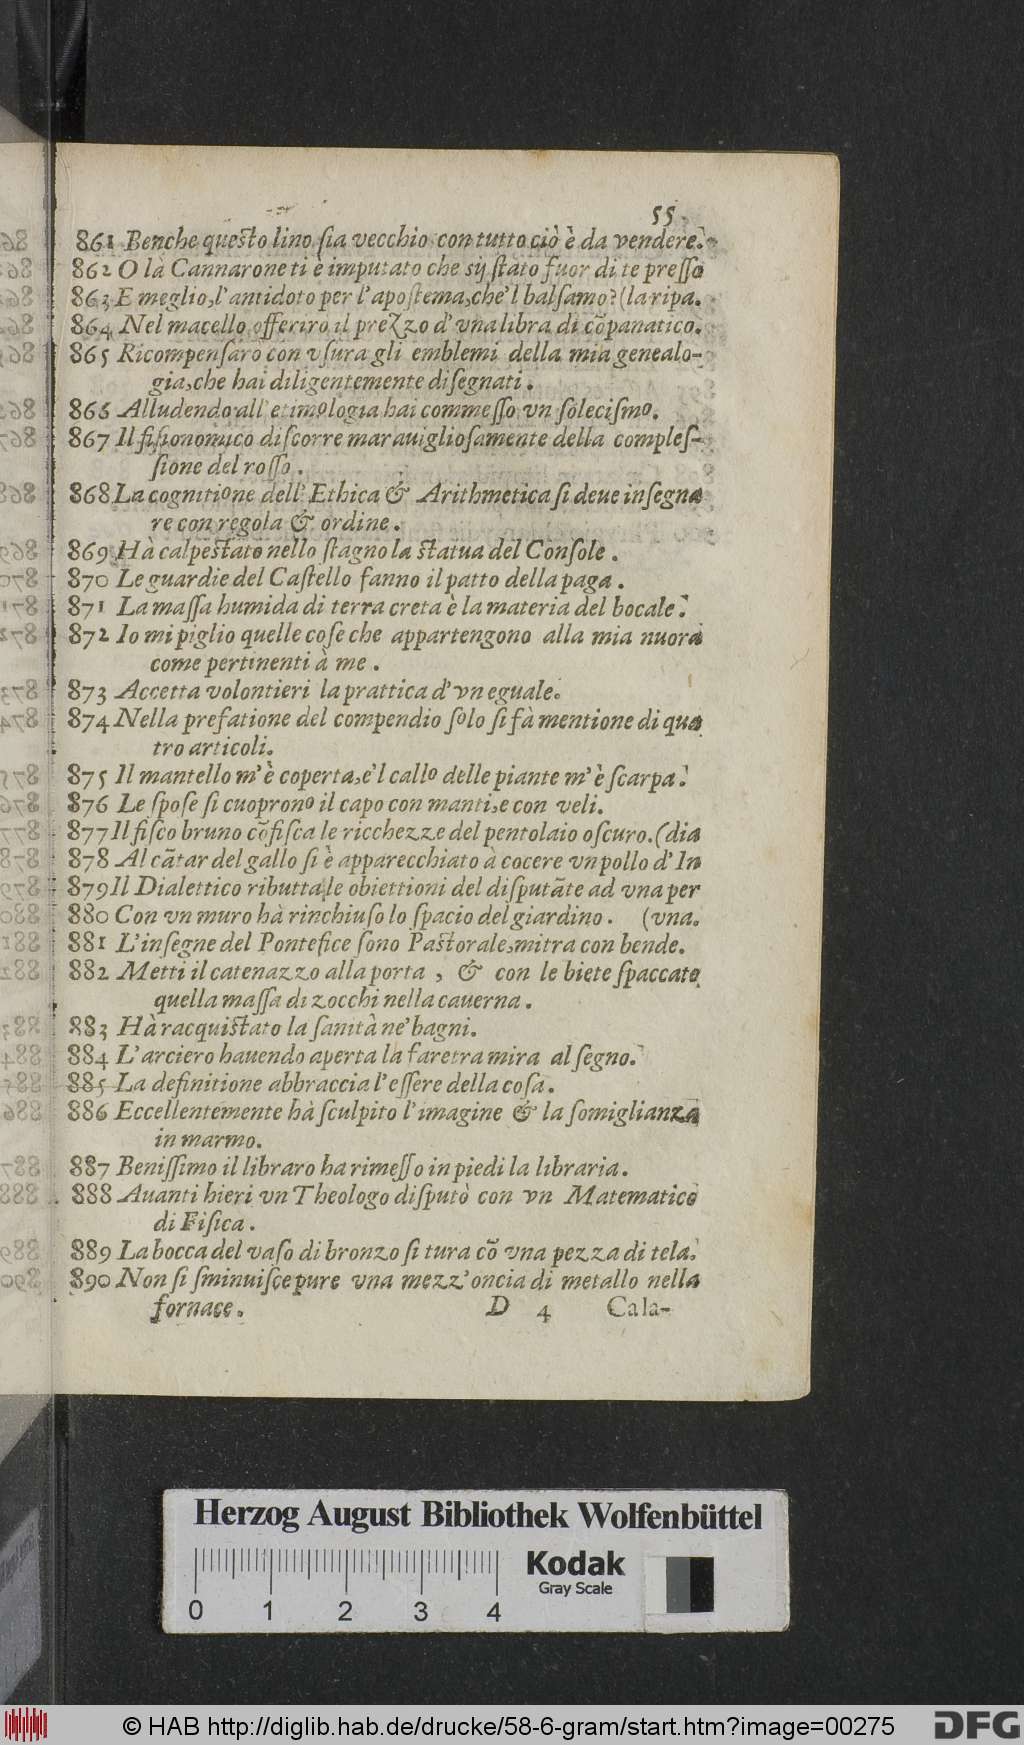 55
861 Benche questo lino ſia vecchio con tutto ciò è da vendere.
862 O là Cannarone ti è imputato che sij ſtato fuor di te preſſo
863 E meglio, l'antidoto per l'apoſtema, che'l balſamo? (la ripa.
864 Nel macello offeriro il prezzo d'vna libra di cõpanatico.
865 Ricompenſaro con vſura gli emblemi della mia genealo-
gia, che hai diligentemente diſegnati.
866 Alludendo all'etimologia hai commeſſo vn ſolecismo.
867 Il fiſionomico diſcorre marauiglioſamente della compleſ-
ſione del roſſo.
868 La cognitione dell'Ethica & Arithmetica ſi deue inſegna
re con regola & ordine.
869 Hà calpestato nello ſtagno la statua del Conſole.
870 Le guardie del Caſtello fanno il patto della paga.
871 La maſſa humida di terra creta è la materia del bocale.
872 Io mi piglio quelle coſe che appartengono alla mia nuora
come pertinenti à me.
873 Accetta volontieri la prattica d'vn eguale.
874 Nella prefatione del compendio ſolo ſi fà mentione di qua
tro articoli.
875 Il mantello m'è coperta, e'l callo delle piante m'è ſcarpa.
876 Le ſpoſe ſi cuoprono il capo con manti, e con veli.
877 Il fiſco bruno cõfiſca le ricchezze del pentolaio oſcuro. (dia
878 Al cãtar del gallo ſi è apparecchiato à cocere vn pollo d'In
879 Il Dialettico ributta le obiettioni del diſputãte ad vna per
880 Con vn muro hà rinchiuſo lo ſpacio del giardino. (vna.
881 L'inſegne del Pontefice ſono Pastorale, mitra con bende.
882 Metti il catenazzo alla porta, & con le biete ſpaccate
quella maſſa di zocchi nella cauerna.
883 Hà racquistato la ſanità ne' bagni.
884 L'arciero hauendo aperta la faretra mira al ſegno.
885 La definitione abbraccia l'eſſere della coſa.
886 Eccellentemente hà ſculpito l'imagine & la ſomiglianza
in marmo.
887 Beniſſimo il libraro ha rimeſſo in piedi la libraria.
888 Auanti hieri vn Theologo diſputò con vn Matematico
di Fiſica.
889 La bocca del vaſo di bronzo ſi tura cõ vna pezza di tela.
890 Non ſi ſminuiſce pure vna mezz'oncia di metallo nella
fornace. D 4 Cala-
Herzog August Bibliothek Wolfenbüttel
Kodak
Gray Scale
0 1 2 3 4
© HAB http://diglib.hab.de/drucke/58-6-gram/start.htm?image=00275
DFG